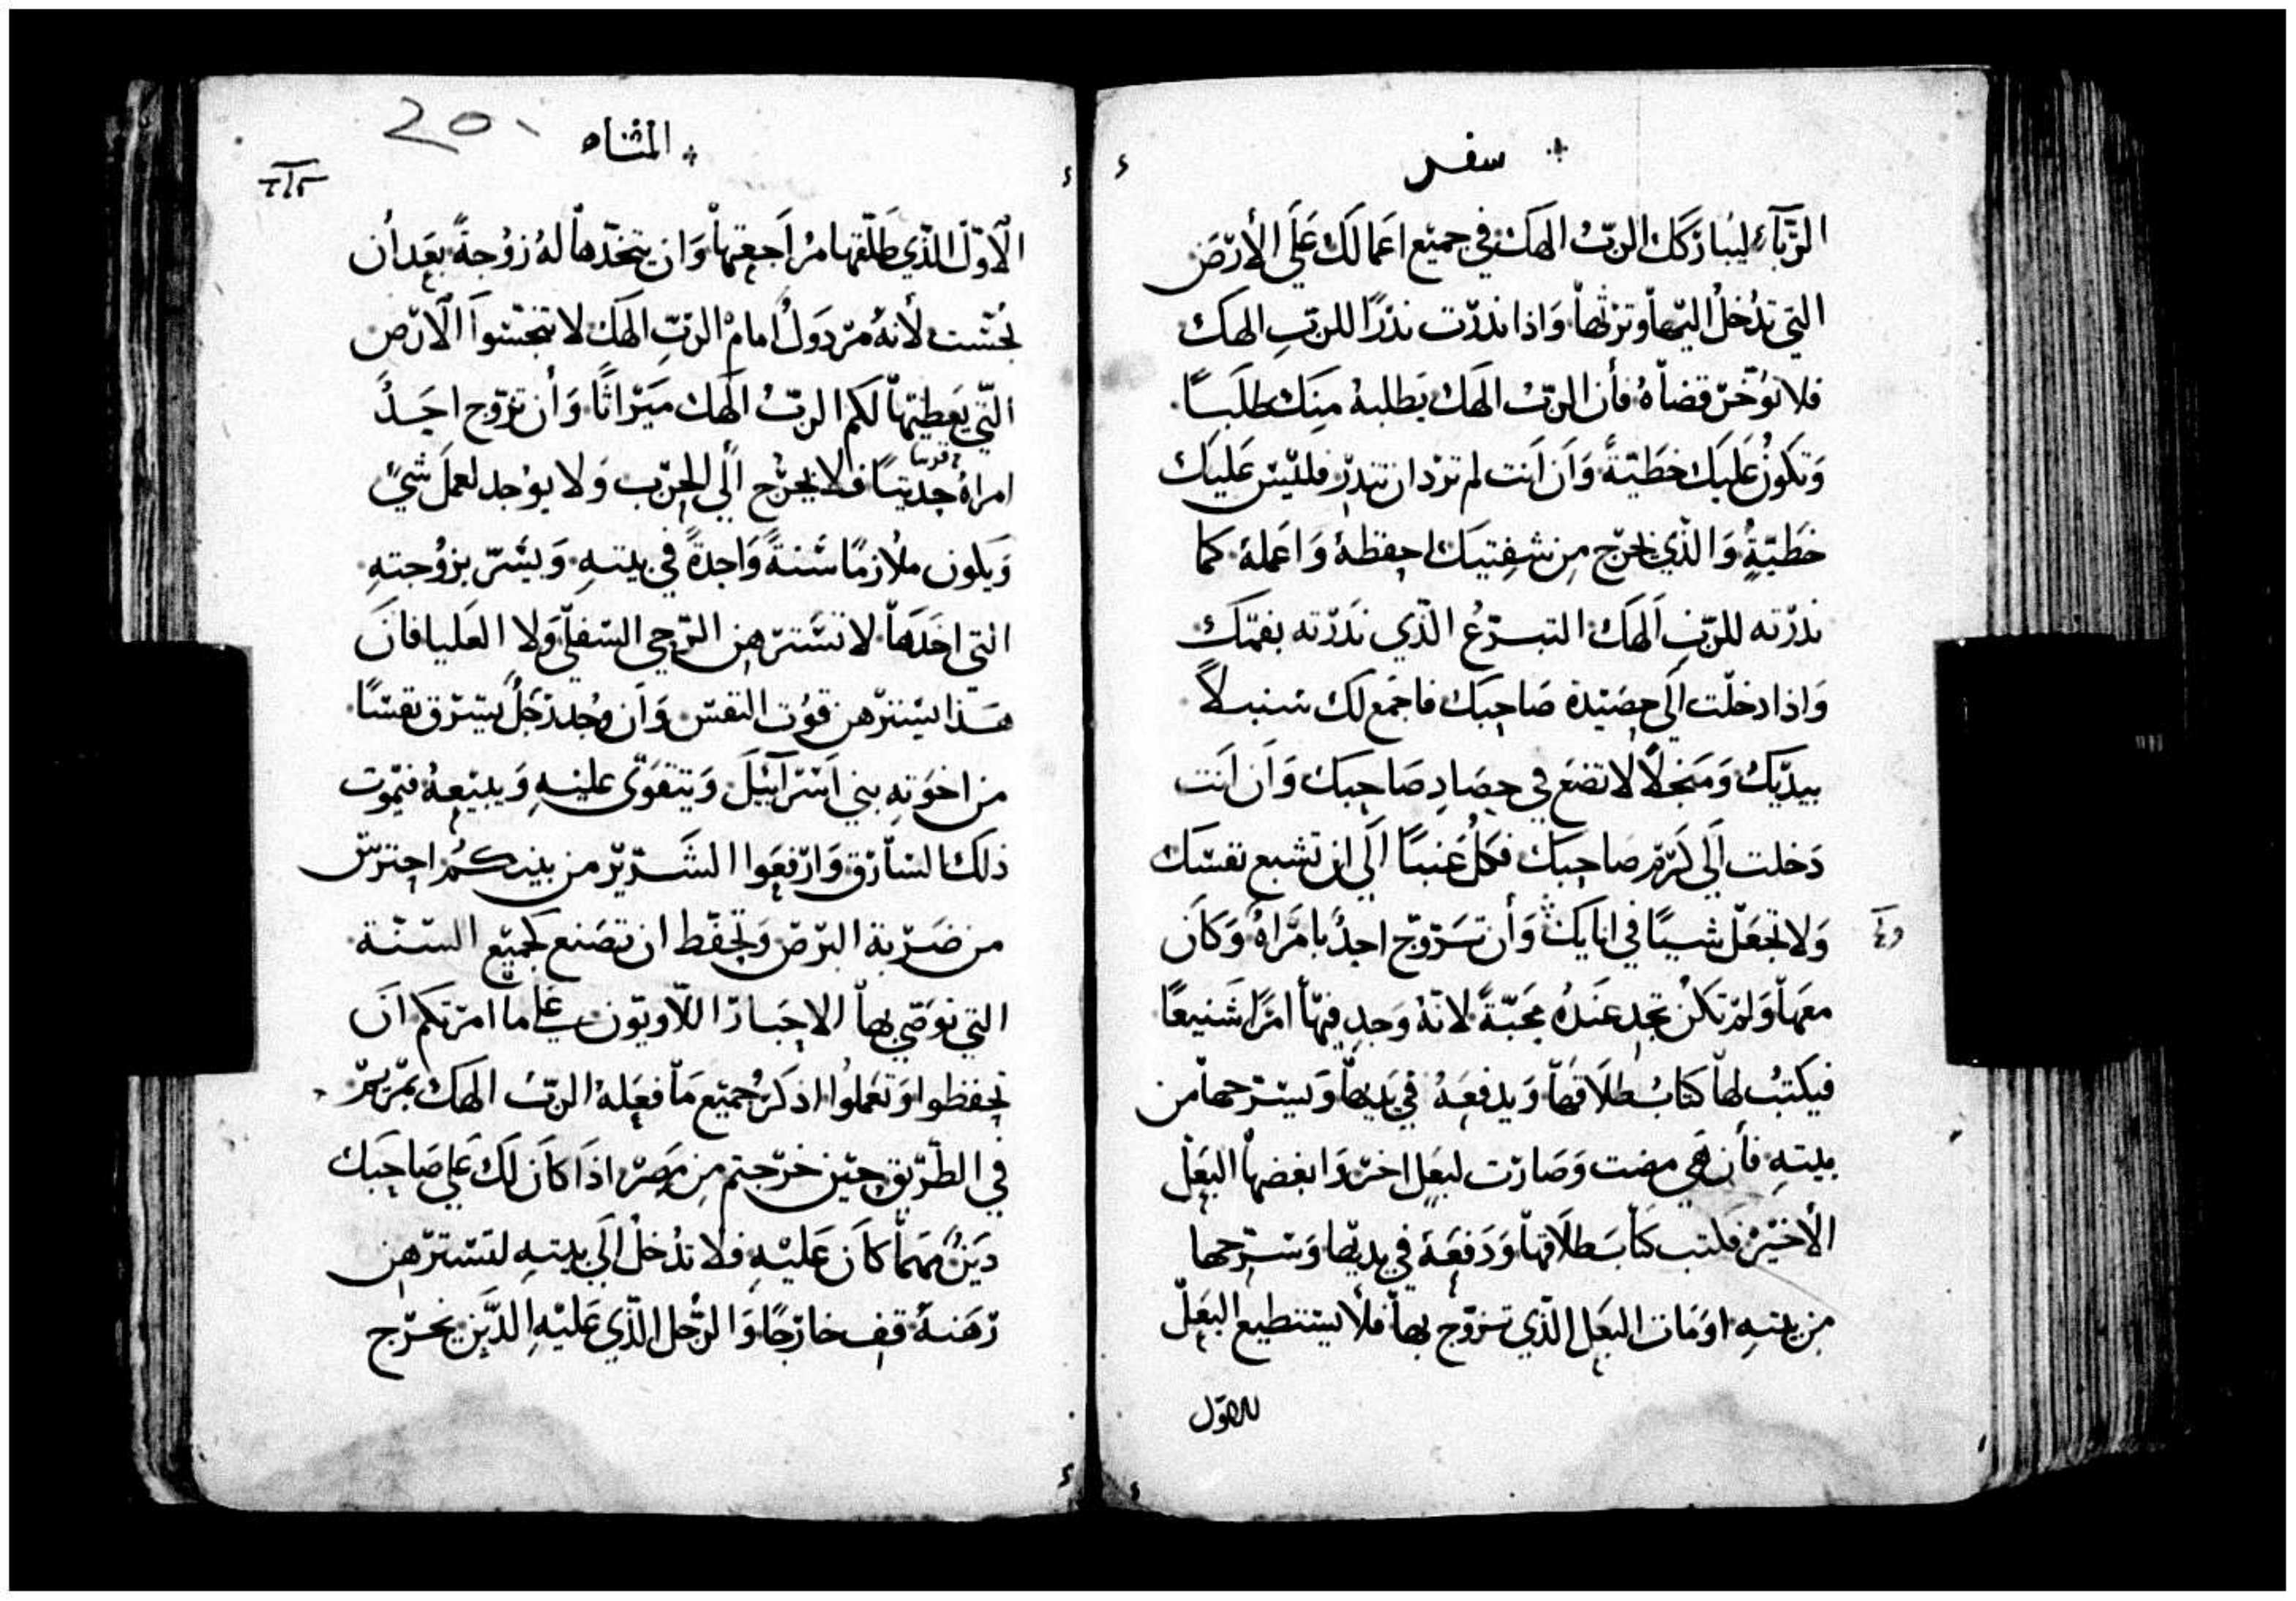 سفر
الرّبآء ليباركك الربّ الهك في جميع اعمالك عَلَى الأرض
التي تدخل اليها وترثها وَاذا نذرت نذرًا للربّ الهك
فلا تؤخّر قضاهُ فأن الربّ الهك يَطلبهُ مِنك طلبًا
وَتكون عَليك خطيّةً وَان انت لم ترد ان تنذر فليس عَليك
خطيّةٍ وَالذي يخرج مِن شفتيك احفظهُ وَاعملهُ كما
نذرته للربّ الهك التبرّعُ الذّي نَذَرْته بفمّك
وَاذا دخلت الَى حصيدة صَاحبك فاجمع لك سنبلاً
بيدّيك وَمَنجلاً لا تضع في حصَادِ صَاحبك وَان انت
دَخلت الَى كرم صاحبك فكل عنبًا الَى ان تشبع نفسك
وَلا تجعل شيًا في انايك وَأن تزوّج احدٌ بامرَاهُ وَكان
معَها وَلم تكن تجد عندُه محبّةً لانّهُ وَجد فيها امرًا شنيعًا
فيكتبُ لها كتابُ طلاقها وَيدفعَهُ في يديها وَيسرّحها من
بيتهِ فأن هي مضت وَصَارت لبَعلٍ اخر وَابغضها البَعل
الأخير فكتب كتاب طلاقها وَدَفعَهُ في يديها وَسرّحها
من بيتهِ اوَمَات البَعل الذّي تزوّج بها فلا يستطيع البعل
الاول
المثناه
الأوّل الذّي طلّقها مرُاجعتها وَان يتخدّها لهُ زوُجةً بعَد أن
نجّست لأنهُ مرذول امام الربّ الهك لا تنجّسوا الارض
التّي يَعطيها لكم الربُّ الهك ميَراثًا وَأن تزوّج احَدٌ
امراهُ حديثًا فلا يخرج الَى الحرب وَلا يوجد لعمل شيً
قريبا
وَيكون ملازمًا سَنةً وَاحدةً في بيتهِ وَيسَرّ بزوُجتهِ
التي اخَدَها لا تسترهن الرّحي السّفلى وَلا العَليا فان
هَذا يسترهن قوُت النفس وَان وجد رَجُلٌ يسرق نفسًا
من اخوَتهِ بني اسَرآئيل وَيتقوَى عليهِ وَيبيعهُ فيموت
ذلك السّارق وَارفعَوا الشَرير من بينكُم احترس
من ضَربة البرص وَتحفّط ان تصَنع كجميّع السّنة
التي توَصّي بها الاحبَار اللاويّون على ما امَرتكم ان
تحفظوا وَتعَملوُا اذكر جميَع ما فعَلهُ الربّ الهك بمريم
في الطّريق حين خرجتم مِن مِصَر اذا كَان لك عَلى صَاحبك
دَينٌ مهَما كان عَليهِ فلا تدُخل الَى بيتهِ لتَسترهن
رَهَنهُ قف خارجًا وَالرجُل الذّي عَليهِ الدّيَن يخرج